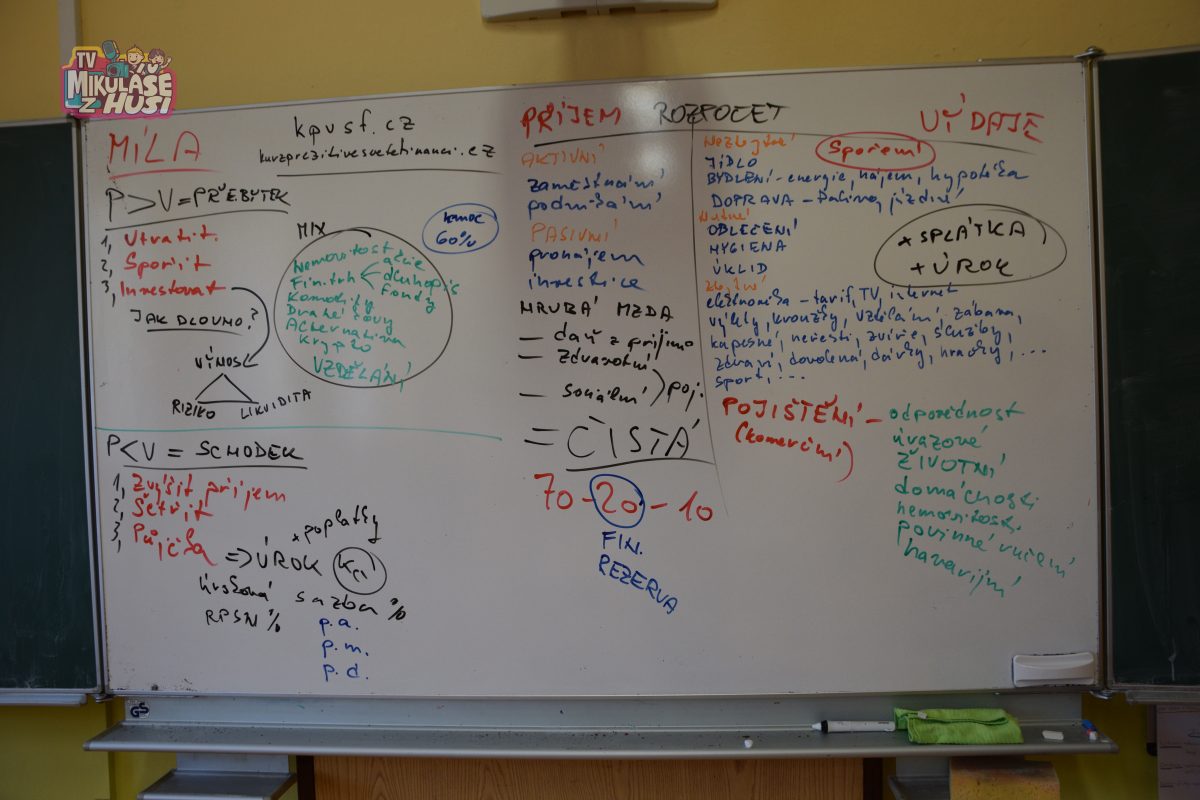 TV
MIKULÁŠE
Z HUSÍ
MÍLA
kpvsf.cz
P > V = PŘEBYTEK
1, Utratit.
2, Spořit
3, Investovat
JAK DLOUHO?
VÝNOS
RIZIKO
LIKVIDITA
MIX
konec
60%
Nemovitost
Fin. trh
akcie
dluhopis
fondy
Komodity
Drahé kovy
Alternativa
Krypto
VZDĚLÁNÍ
P < V = SCHODEK
1, Zvýšit příjem
2, Šetřit
3, Půjčka
=> ÚROK
+ poplatky
Kč
úroková sazba %
RPSN %
p.a.
p.m.
p.d.
PŘÍJEM ROZPOČET VÝDAJE
AKTIVNÍ
zaměstnání
podnikání
PASIVNÍ
pronájem
investice
HRUBÁ MZDA
— daň z příjmu
— zdravotní
— sociální ) poj.
= ČISTÁ
70 - 20 - 10
FIN.
REZERVA
Nezbytné
Spoření
JÍDLO
BYDLENÍ - energie, nájem, hypotéka
DOPRAVA - Palivo, jízdné
Nutné
OBLEČENÍ
HYGIENA
ÚKLID
+ SPLÁTKA
+ ÚROK
Zbytné
elektronika - tarif, TV, internet
výlety, kroužky, vzdělání, zábava,
kapesné, neřesti, zvíře, služby,
zdraví, dovolená, dárky, hračky, ...
sport, ...
POJIŠTĚNÍ -
(komerční)
odpovědnost
úrazové
ŽIVOTNÍ
domácnosti
nemovitosti
povinné ručení
havarijní
GS